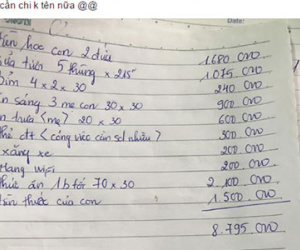 cần chi k tên nữa @@
Date:
tiền học con 2 đứa 1680 000
sữa tươi 5 thùng x 215 1.075 000
Bỉm 4 x 2 x 30 240 000
ăn sáng 3 mẹ con 30 x 30 900 000
ăn trưa (mẹ) 20 x 30 600 000
thẻ đt (công việc cần sd nhiều) 300 000
xăng xe 200 000
Mạng wifi 200 000
thức ăn 1b tối 70 x 30 2.100 000
tiền thuốc của con 1.500 000
8.795 000